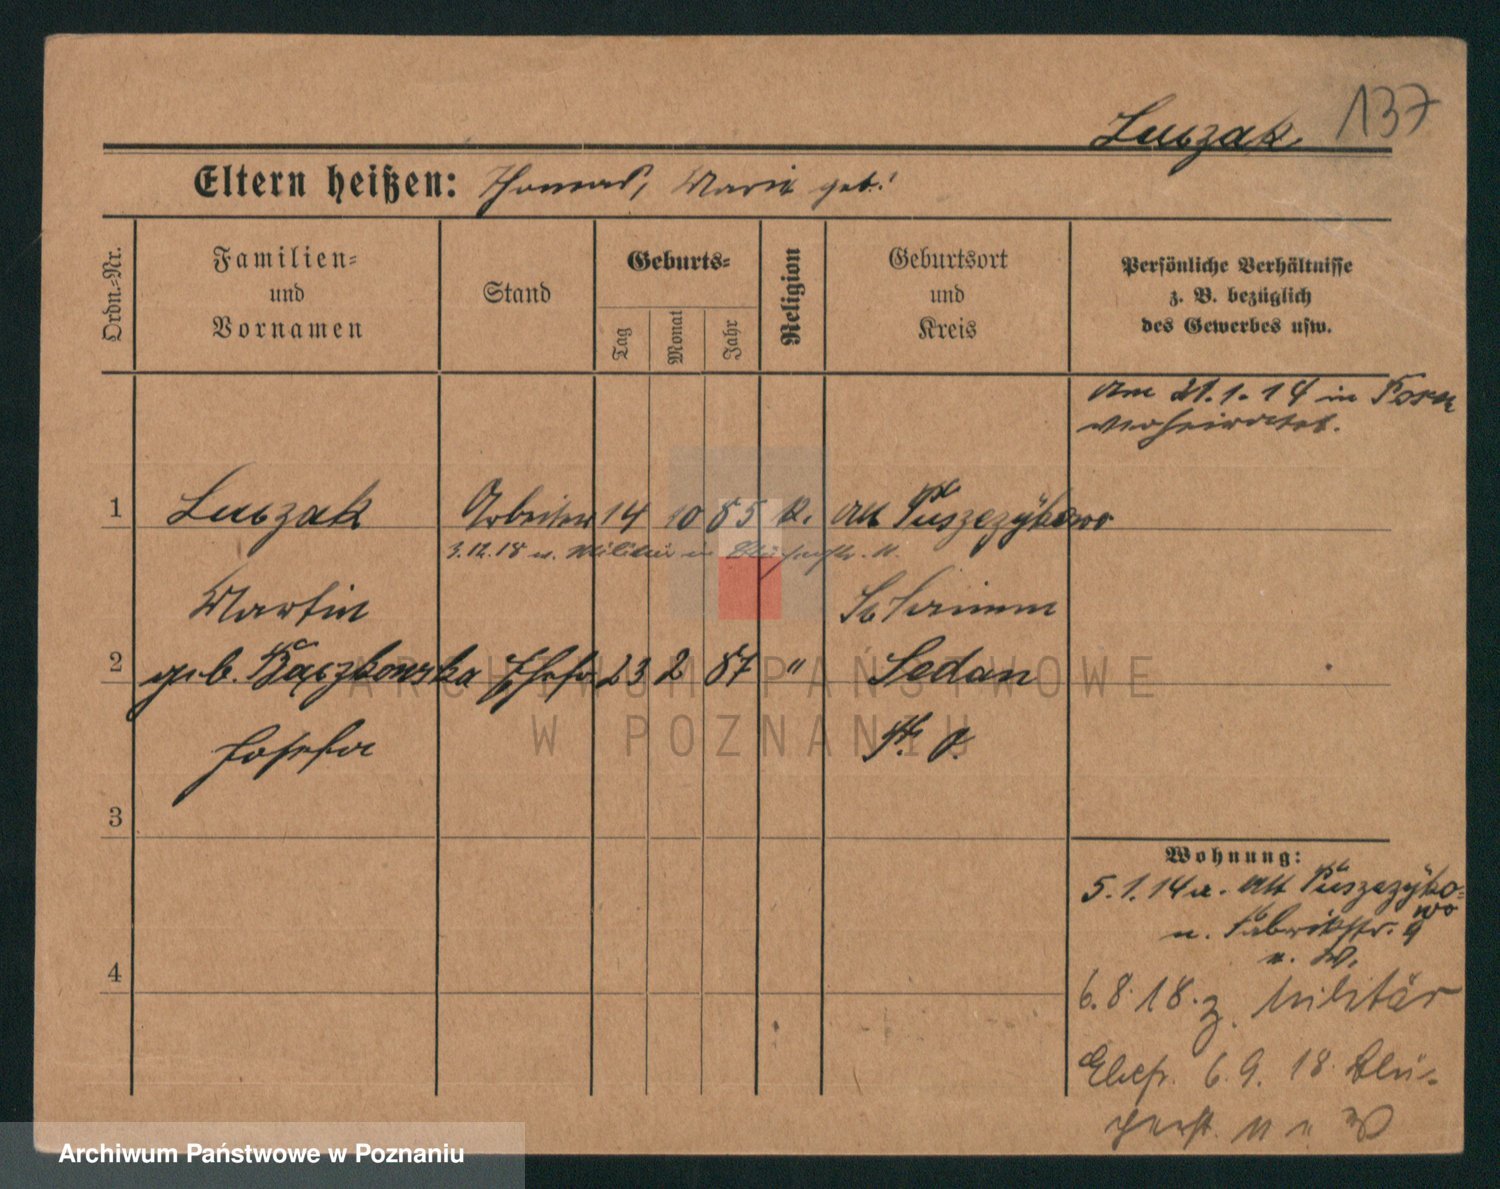 137
Luczak
Eltern heißen: Thomas, Marie geb.:
Ordn.-Nr.
Familien-
und
Vornamen
Stand
Geburts-
Tag
Monat
Jahr
Religion
Geburtsort
und
Kreis
Persönliche Verhältnisse
z. B. bezüglich
des Gewerbes usw.
Am 21.1.14 in Posen
verheiratet.
1 Luczak Arbeiter 14 10 85 k. Alt Puszczykowo
3.12.18 v. Militär in
Martin Schrimm
2 geb. Bączkowska Ehefr. 23 2 87 " Sedan
Josefa
3
4
Wohnung:
5.1.14 a. Alt Puszczyko-
wo
n. Fabrikstr. 9
b. W.
6.8.18. z. Militär
Ehefr. 6.9.18. Blü-
cherstr. 11 b. W
ARCHIWUM PAŃSTWOWE
W POZNANIU
Archiwum Państwowe w Poznaniu